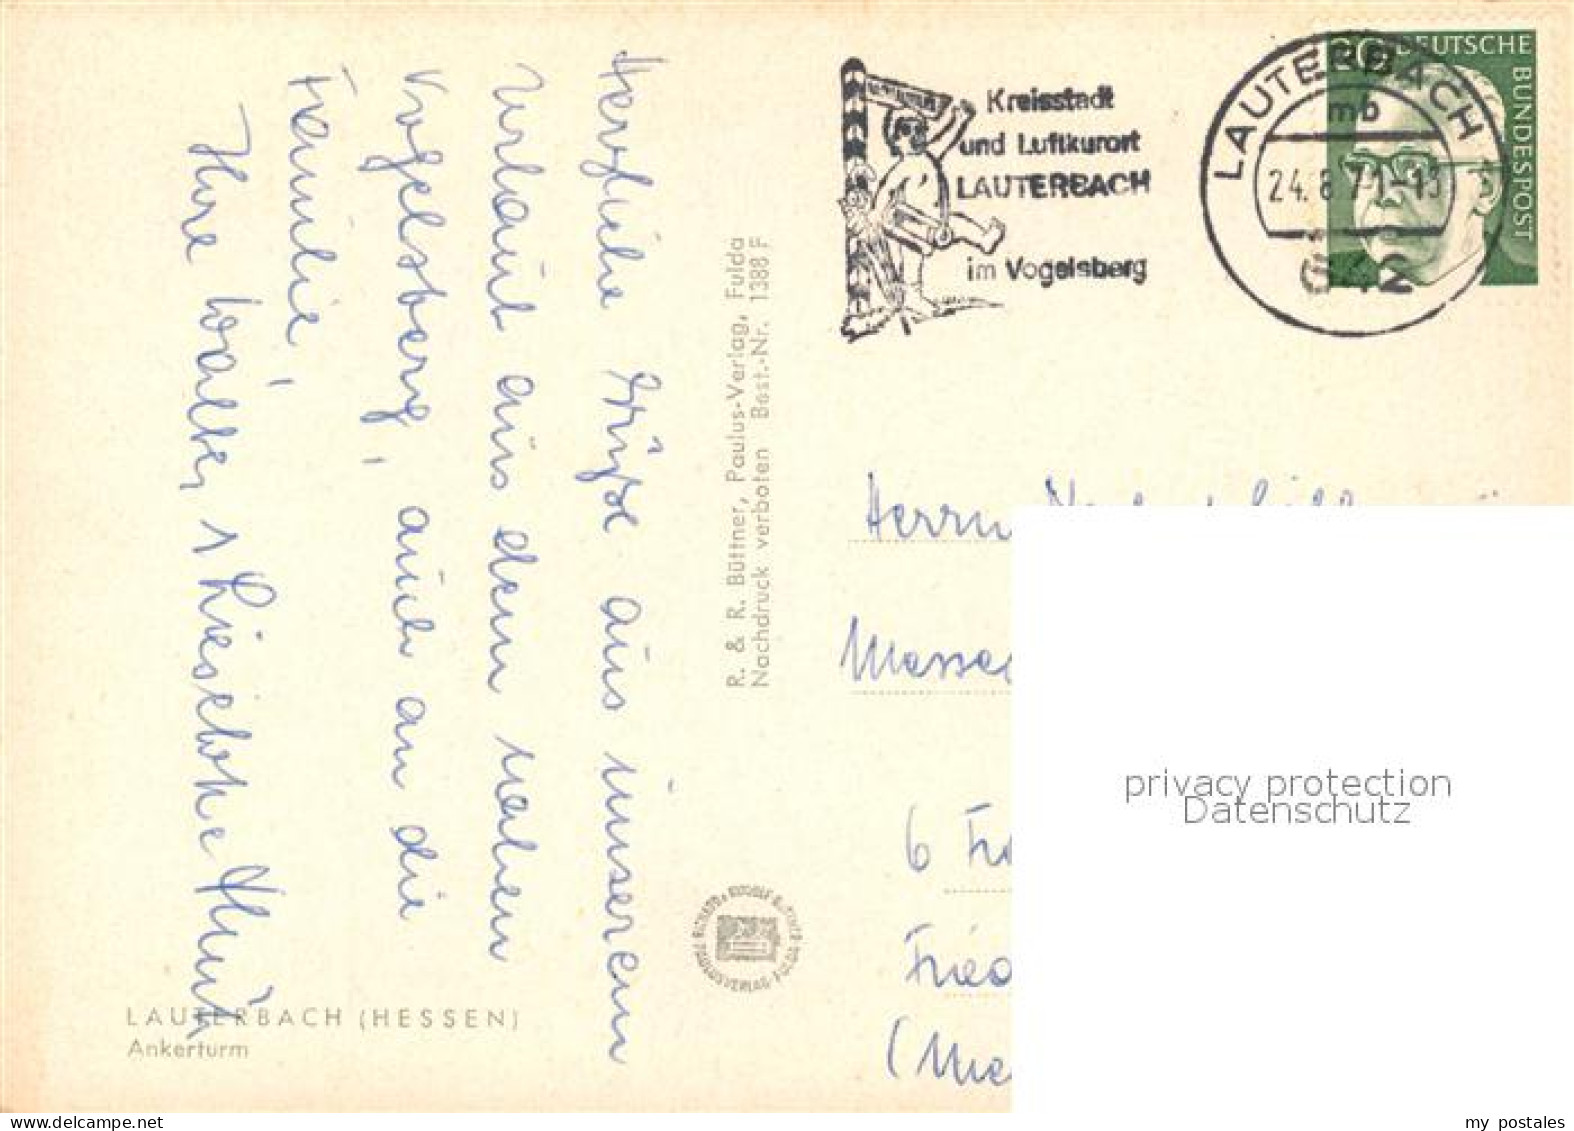 Herzliche Grüße aus unserem
Urlaub aus dem nahen
Vogelsberg, auch an die
Familie,
Ihre Walter u Lieselotte
LAUTERBACH (HESSEN)
Ankerturm
R. & R. Büttner, Paulus-Verlag, Fulda
Nachdruck verboten Best.-Nr. 1388 F
Kreisstadt
und Luftkurort
LAUTERBACH
im Vogelsberg
LAUTERBACH
mb
24. 8. 71-13
642
DEUTSCHE
BUNDESPOST
Herrn
Messe
6 Fra
Fried
(Me
privacy protection
Datenschutz
my postales
www.delcampe.net